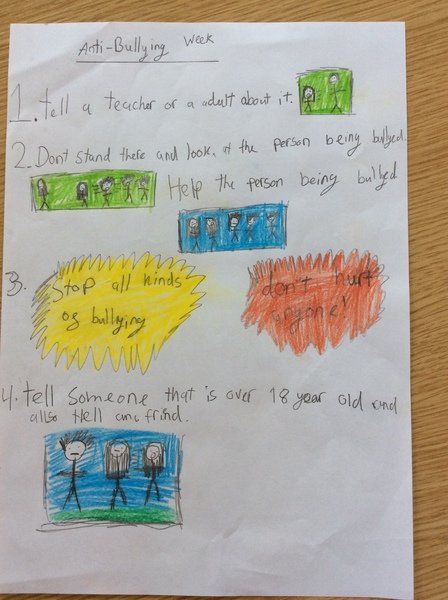 Anti-Bullying Week
1. tell a teacher or a adult about it.
2. Dont stand there and look at the person being bullyed.
Help the person being bullyed
3. Stop all kinds
of bullying
don't hurt
anyone!
4. tell someone that is over 18 year old and
allso tell a frind.